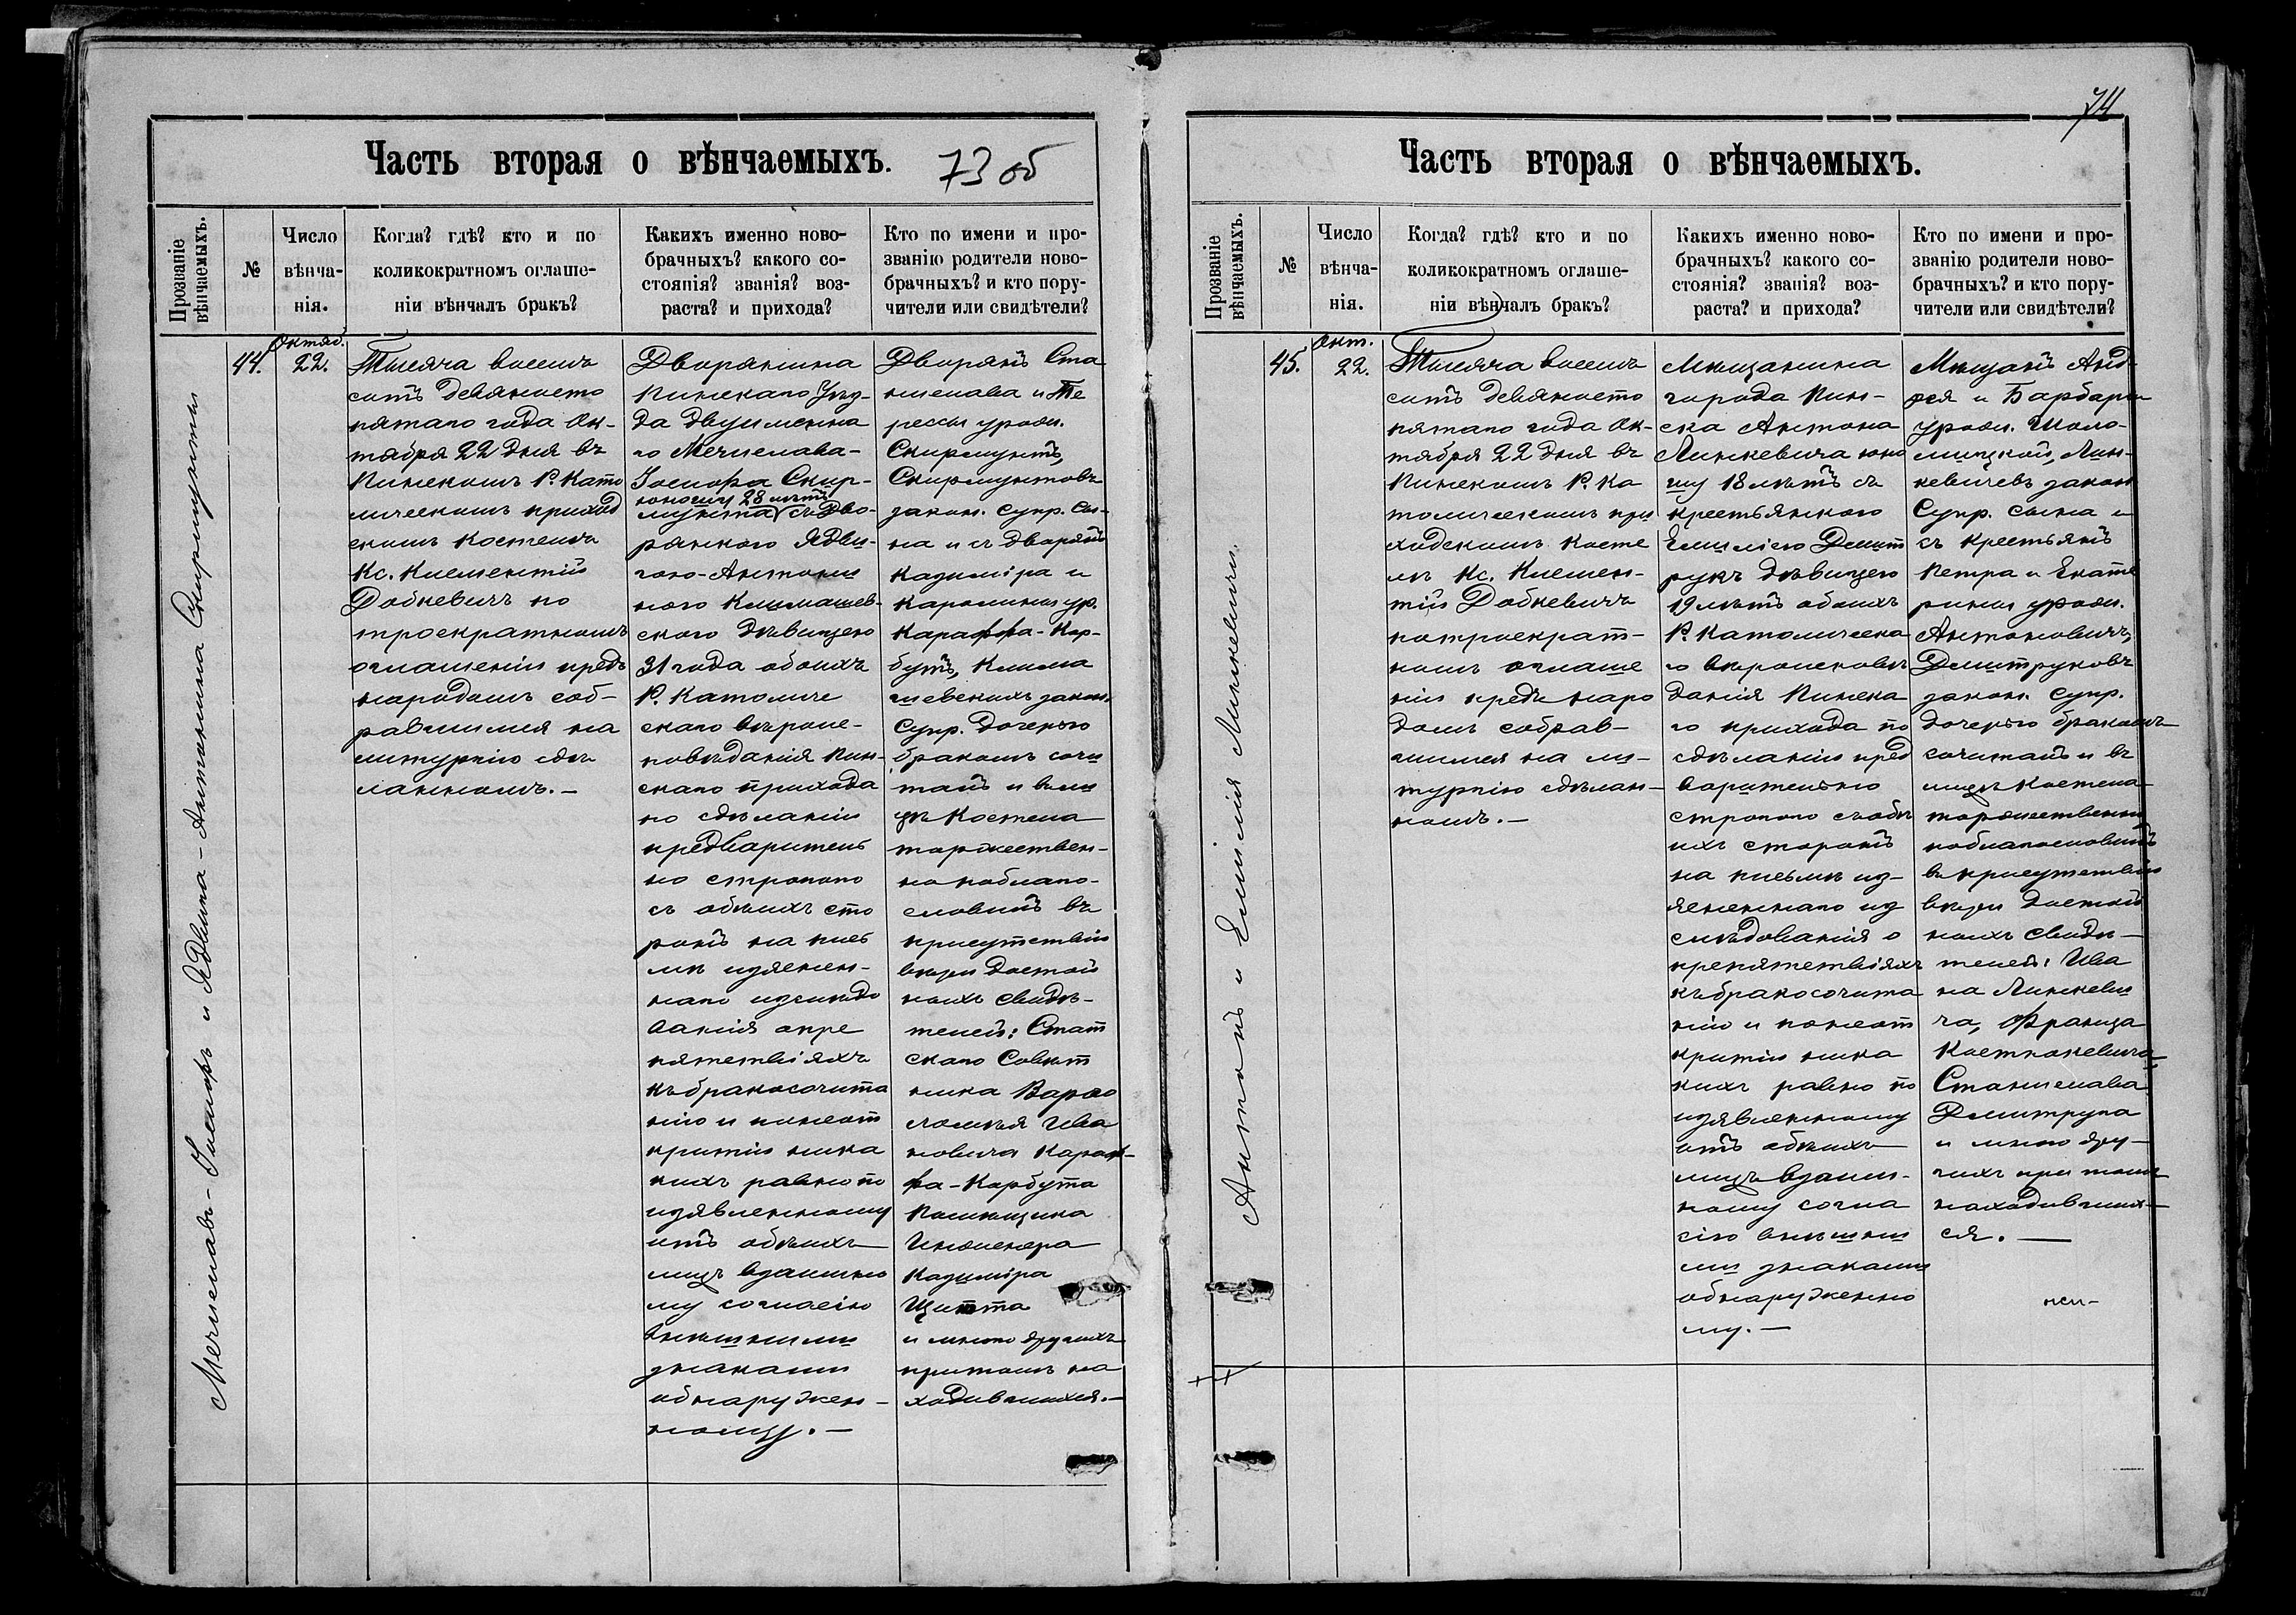 Часть вторая о вѣнчаемыхъ.
73 об
Прозваніе
вѣнчаемыхъ.
№
Число
вѣнча-
нія.
Когда? гдѣ? кто и по
коликократномъ оглаше-
ніи вѣнчалъ бракъ?
Каихъ именно ново-
брачныхъ? какого со-
стоянія? званія? воз-
раста? и прихода?
Кто по имени и про-
званію родители ново-
брачныхъ? и кто пору-
чители или свидѣтели?
Мечиславъ-Іосифъ и Ядвига-Антонина Скирмунты
44.
Октяб.
22.
Тысяча восемь
сотъ девяносто
пятаго года Ок-
тября 22 дня въ
Пинскомъ Р. Като
лическомъ приход
скомъ костелѣ
Кс. Клементій
Добкевичъ по
троекратномъ
оглашеніи предъ
народомъ соб-
равшимся на
литургію сдѣ
ланномъ.-
Дворянина
Пинскаго Уѣз-
да двуименна
го Мечислава-
Іосифа Скир-
юношу 28 лѣтъ
мунта съ дво-
рянкою Ядви-
гою-Антони
ною Климашев-
скою дѣвицею
31 года обоихъ
Р. Католиче
скаго вѣроис-
повѣданія Пин-
скаго прихода
по сдѣланіи
предваритель
но строгого
съ обѣихъ сто
ронъ на пись
мѣ изяснен-
наго изслѣдо
ванія опре
пятствіяхъ
къ бракосочита
нію и понеот
крытіи ника
кихъ равно по
изявленному
отъ обѣихъ
лицъ взаимно
му согласію
внѣшними
знаками
обнаружен-
ному.-
Дворянъ Ста
нислава и Те
рессы урожд.
Скирмунтъ,
Скирмунтовъ
закон. супр. Сы-
на и съ дворянъ
Казиміра и
Каролины ур.
Караффа-Кор-
бутъ, Клима
шевскихъ закон.
Супр. Дочерью
бракомъ сочи
талъ и въ ли
цѣ Костела
торжествен-
но поблаго-
словилъ въ
присутствіи
вѣры достой
ныхъ свидѣ-
телей: Стат
скаго Совѣт
ника Варфо
ломѣя Ива
новича Караф-
фа-Корбута
Помѣщика
Инженера
Казиміра
Щитта
и много другихъ
притомъ на
ходившихся.-
74
Часть вторая о вѣнчаемыхъ.
Прозваніе
вѣнчаемыхъ.
№
Число
вѣнча-
нія.
Когда? гдѣ? кто и по
коликократномъ оглаше-
ніи вѣнчалъ бракъ?
Каихъ именно ново-
брачныхъ? какого со-
стоянія? званія? воз-
раста? и прихода?
Кто по имени и про-
званію родители ново-
брачныхъ? и кто пору-
чители или свидѣтели?
Антонъ и Емилія Линкевичи.
45.
Окт.
22.
Тысяча восемь
сотъ девяносто
пятаго года Ок-
тября 22 дня въ
Пинскомъ Р. Ка
толическомъ при
ходскомъ косте
лѣ Кс. Клемен-
тій Добкевичъ
потроекрат-
номъ оглаше
ніи предъ наро
домъ собрав-
шимся на ли-
тургію сдѣлан-
номъ.-
Мѣщанина
города Пин-
ска Антона
Линкевича юно
шу 18 лѣтъ съ
крестьянкою
Емиліею Дмит
рукъ дѣвицею
19 лѣтъ обоихъ
Р. Католическа
го вѣроисповѣ
данія Пинска
го прихода по
сдѣланіи пред
варительно
строгого съ обѣ
ихъ сторонъ
на письмѣ из-
ясненнаго из
слѣдованія о
препятствіяхъ
къ бракосочита
нію и понеот
крытіи ника
кихъ равно по
изявленному
отъ обѣихъ
лицъ взаим-
ному согла
сію внѣшни
ми знаками
обнаруженно
му.-
Мѣщанъ Анд-
рея и Барбары
урожд. Шоло-
мицкой, Лин-
кевичевъ закон
Супр. сына и
съ крестьянъ
Петра и Екате
рины урожд.
Антоновичъ,
Дмитруковъ
закон. супр.
дочерью бракомъ
сочиталъ и въ
лицѣ Костела
торжественно
поблагословилъ
въ присутствіи
вѣры достой
ныхъ свидѣ-
телей: Ива
на Линкеви
ча, Франца
Станислава
Дмитрука
и много дру-
гихъ при томъ
находивших-
ся.-